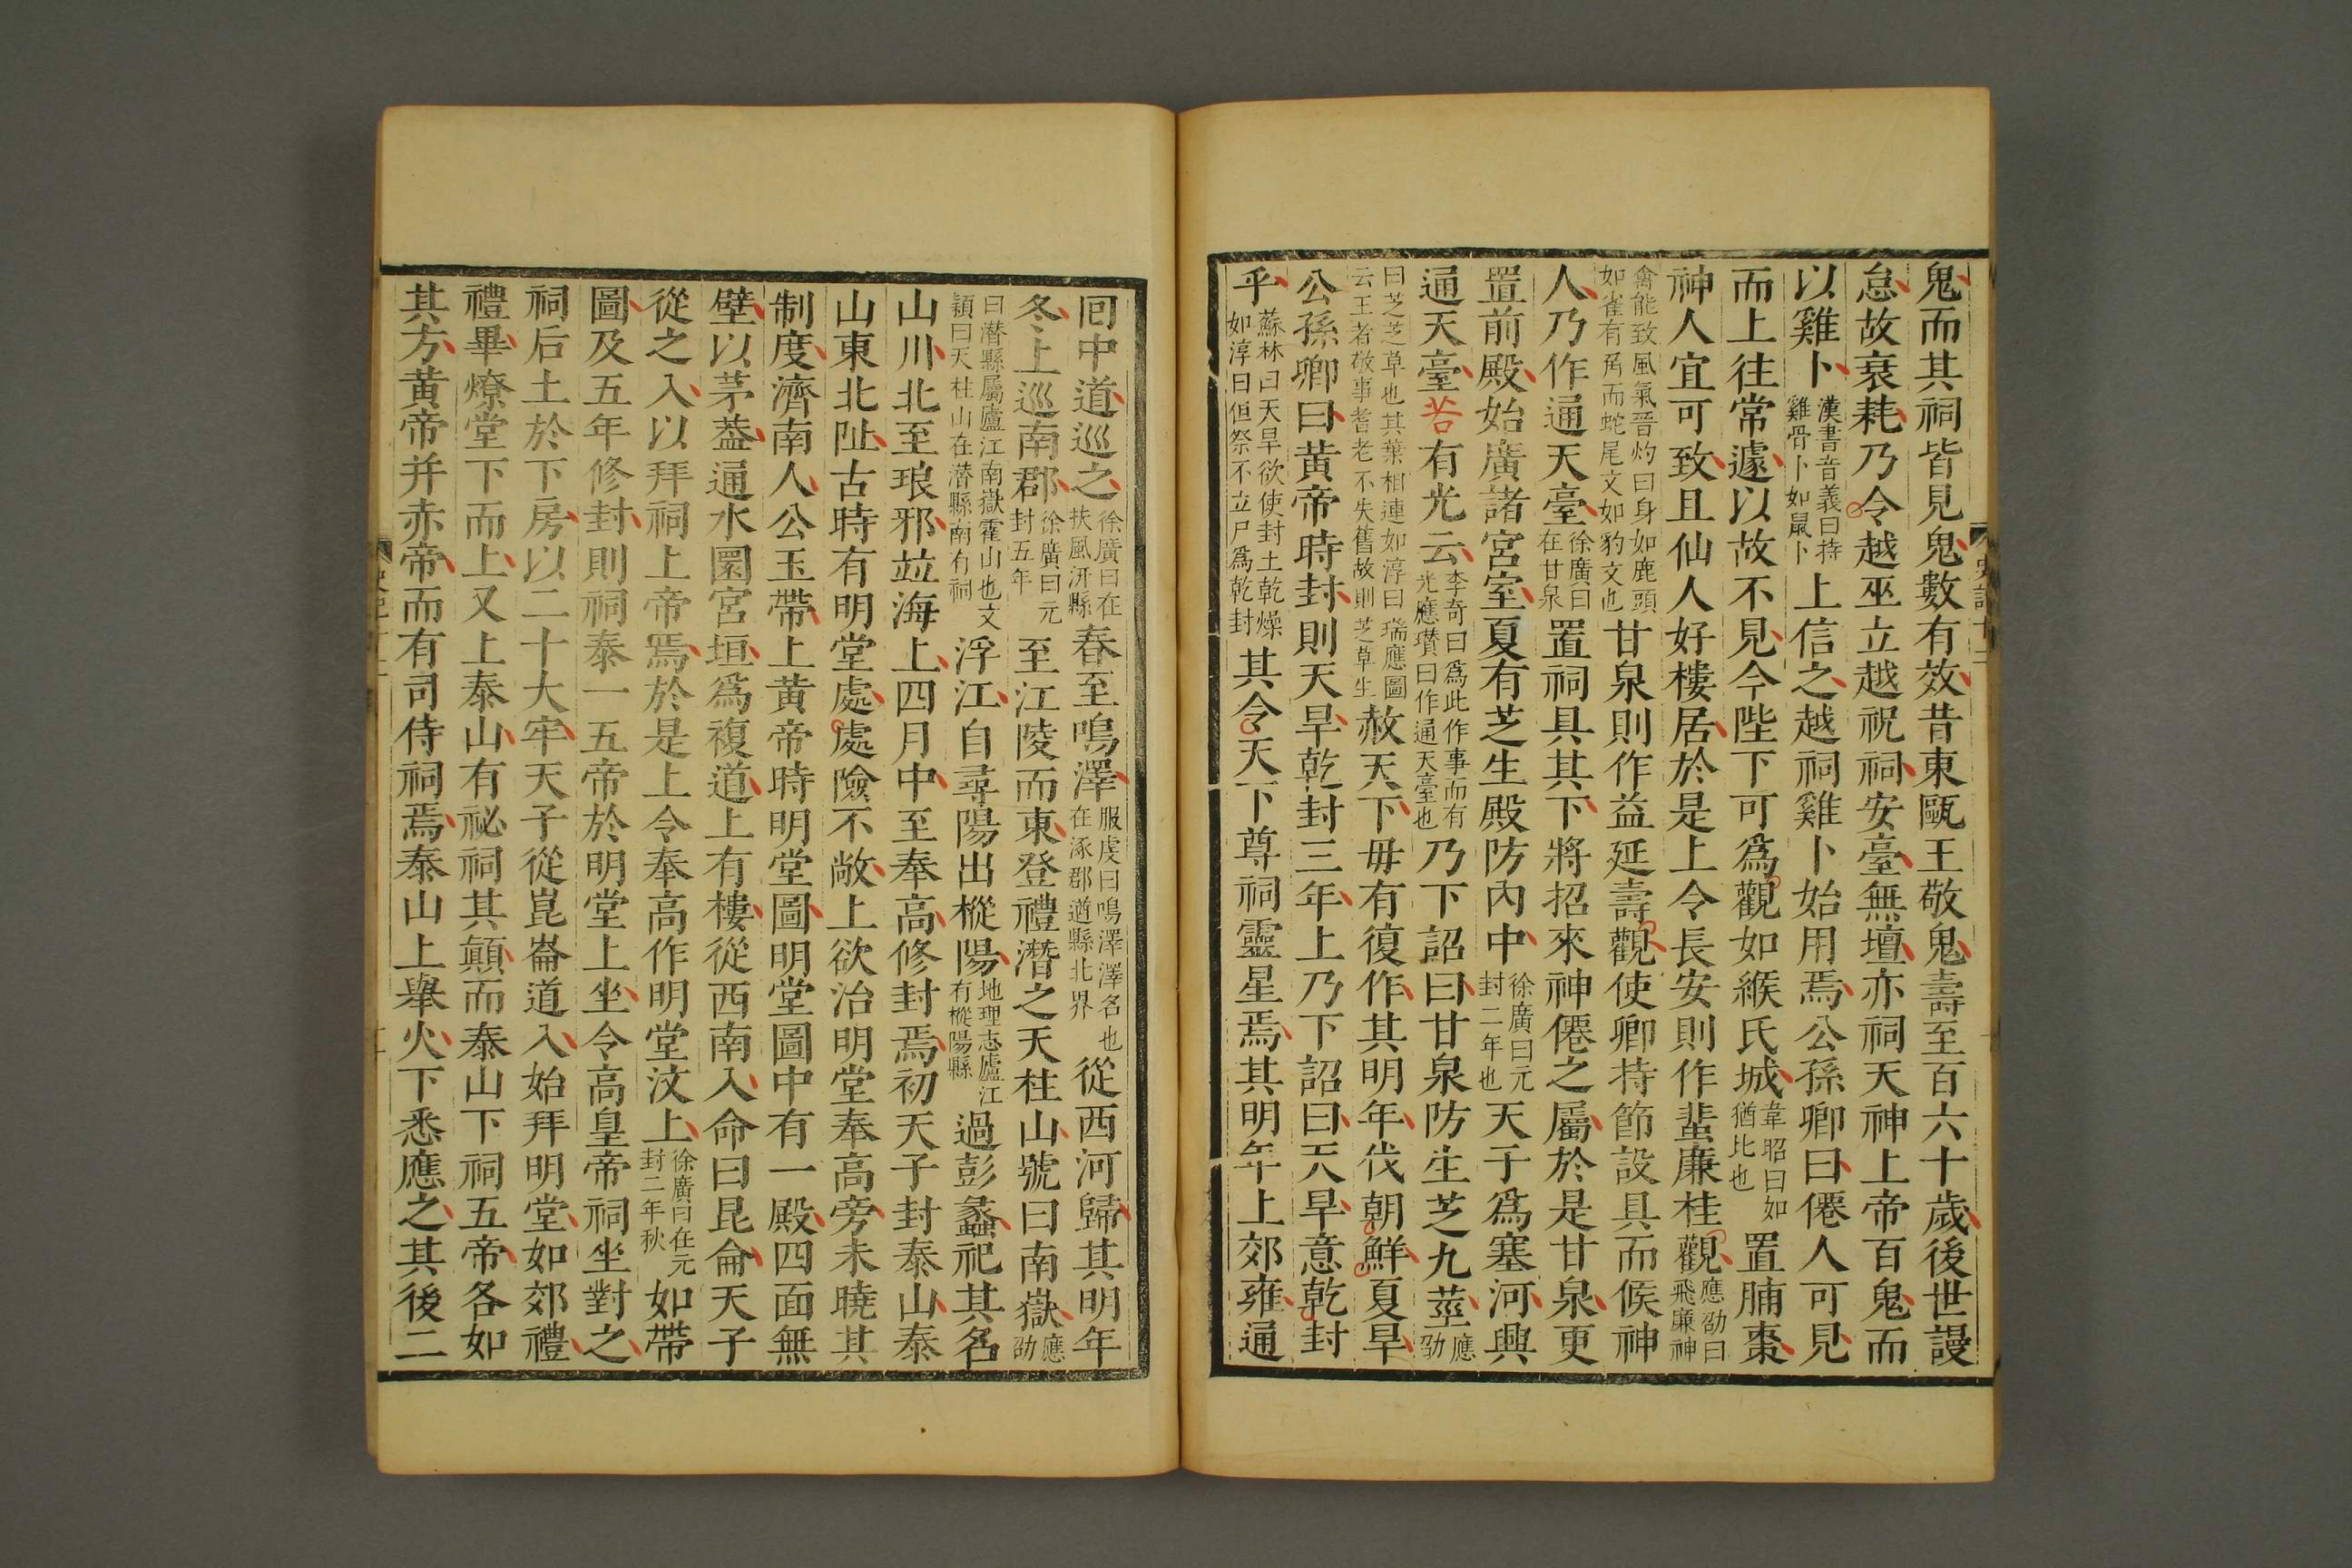 鬼而其祠皆見鬼數有效昔東甌王敬鬼壽至百六十歲後世謾
怠故衰耗乃令越巫立越祝祠安臺無壇亦祠天神上帝百鬼而
以雞卜漢書音義曰持雞骨卜如鼠卜上信之越祠雞卜始用焉公孫卿曰僊人可見
而上往常遽以故不見今陛下可爲觀如緱氏城韋昭曰如猶比也置脯棗
神人宜可致且仙人好樓居於是上令長安則作蜚廉桂觀應劭曰飛廉神
禽能致風氣晉灼曰身如鹿頭如雀有角而蛇尾文如豹文也甘泉則作益延壽觀使卿持節設具而候神
人乃作通天臺徐廣曰在甘泉置祠具其下將招來神僊之屬於是甘泉更
置前殿始廣諸宮室夏有芝生殿防內中徐廣曰元封二年也天子爲塞河興
通天臺若有光云李奇曰爲此作事而有光應瓚曰作通天臺也乃下詔曰甘泉防生芝九莖應劭
曰芝芝草也其葉相連如淳曰瑞應圖云王者敬事耆老不失舊故則芝草生赦天下毋有復作其明年伐朝鮮夏旱
公孫卿曰黃帝時封則天旱乾封三年上乃下詔曰天旱意乾封
乎蘇林曰天旱欲使封土乾燥如淳曰但祭不立尸爲乾封其令天下尊祠靈星焉其明年上郊雍通
回中道巡之徐廣曰在扶風汧縣春至鳴澤服虔曰鳴澤澤名也在涿郡遒縣北界從西河歸其明年
冬上巡南郡徐廣曰元封五年至江陵而東登禮潛之天柱山號曰南嶽應劭
曰潛縣屬廬江南嶽霍山也文穎曰天柱山在潛縣南有祠浮江自尋陽出樅陽地理志廬江有樅陽縣過彭蠡祀其名
山川北至琅邪竝海上四月中至奉高修封焉初天子封泰山泰
山東北阯古時有明堂處處險不敞上欲治明堂奉高旁未曉其
制度濟南人公玉帶上黃帝時明堂圖明堂圖中有一殿四面無
壁以茅葢通水圜宮垣爲複道上有樓從西南入命曰昆侖天子
從之入以拜祠上帝焉於是上令奉高作明堂汶上徐廣曰在元封二年秋如帶
圖及五年修封則祠泰一五帝於明堂上坐令高皇帝祠坐對之
祠后土於下房以二十大牢天子從崑崙道入始拜明堂如郊禮
禮畢燎堂下而上又上泰山有祕祠其顛而泰山下祠五帝各如
其方黃帝并赤帝而有司侍祠焉泰山上舉火下悉應之其後二